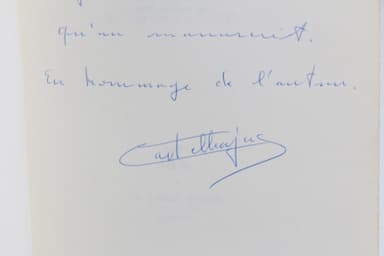 qu'un manuscrit.
En hommage de l'auteur.